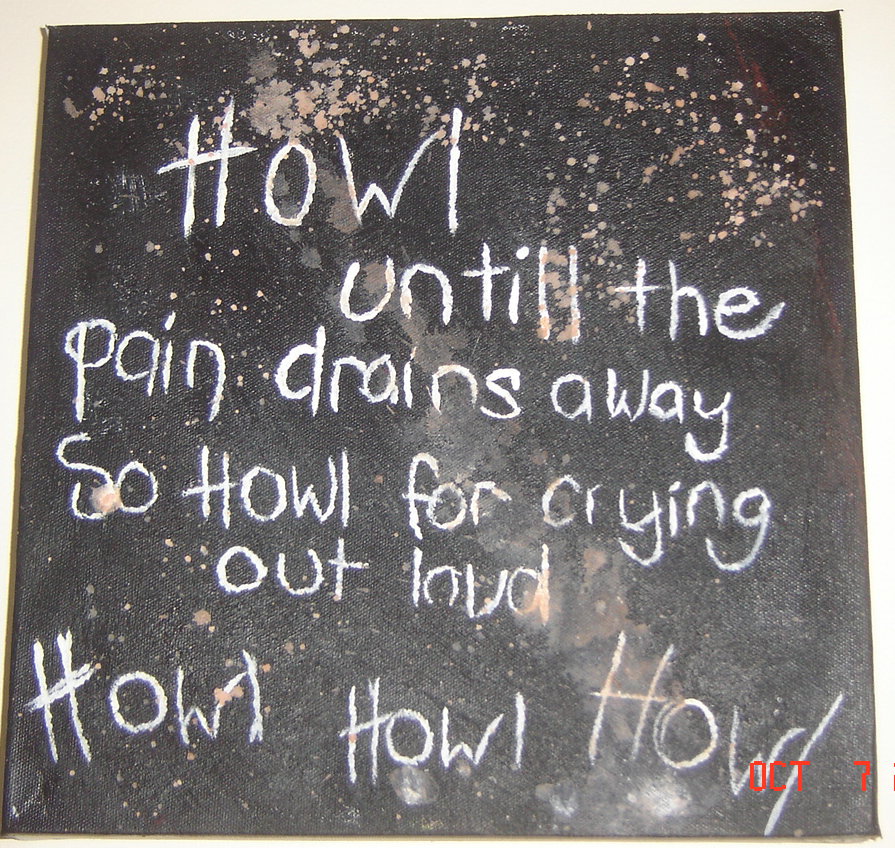 Howl
untill the
pain drains away
So Howl for crying
out loud
Howl Howl Howl
OCT 7